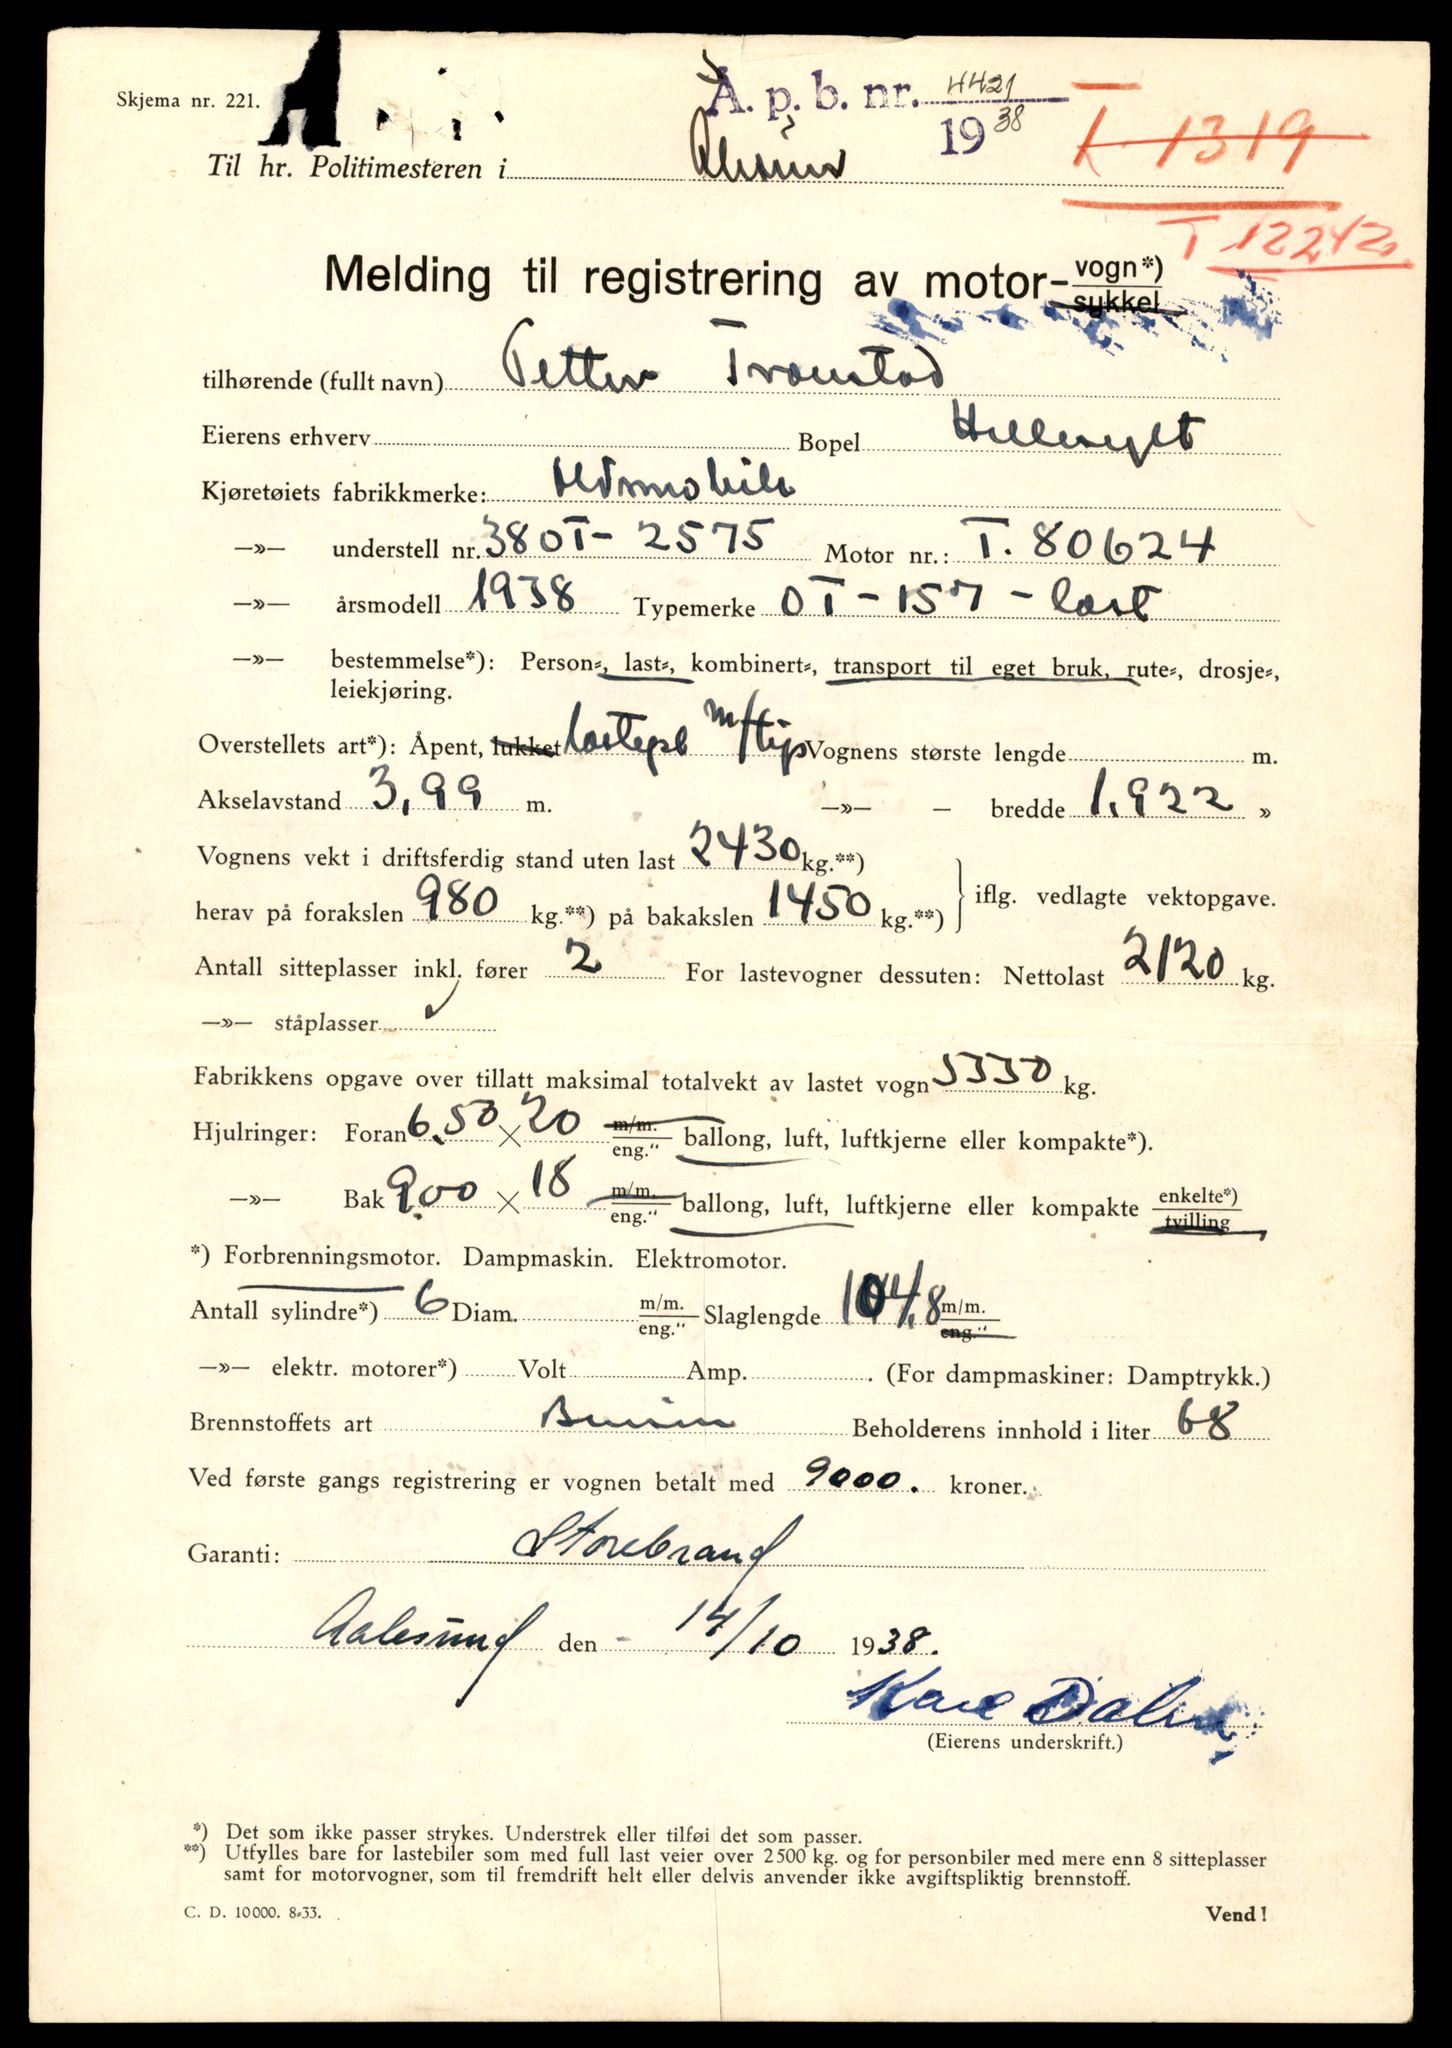 Skjema nr. 221.
Å. p. b. nr. 4421
1938
T 1319
Til hr. Politimesteren i Ålesund
T 12242
Melding til registrering av motor- vogn*)
sykkel
tilhørende (fullt navn) Petter Tronstad
Eierens erhverv Bopel Hellesylt
Kjøretøiets fabrikkmerke: Oldsmobile
—»— understell nr. 380T- 2575 Motor nr.: T. 80624
—»— årsmodell 1938 Typemerke OT-157-last
—»— bestemmelse*): Person-, last-, kombinert-, transport til eget bruk, rute-, drosje-,
leiekjøring.
Overstellets art*): Åpent, lukket lastepl m/tip Vognens største lengde m.
Akselavstand 3,99 m. —»— — bredde 1,922 »
Vognens vekt i driftsferdig stand uten last 2430 kg.**)
herav på forakslen 980 kg.**) på bakakslen 1450 kg.**) iflg. vedlagte vektopgave.
Antall sitteplasser inkl. fører 2 For lastevogner dessuten: Nettolast 2120 kg.
—»— ståplasser
Fabrikkens opgave over tillatt maksimal totalvekt av lastet vogn 5330 kg.
Hjulringer: Foran 6.50 × 20 m/m. eng." ballong, luft, luftkjerne eller kompakte*).
—»— Bak 9.00 × 18 m/m. eng." ballong, luft, luftkjerne eller kompakte enkelte*) tvilling
*) Forbrenningsmotor. Dampmaskin. Elektromotor.
Antall sylindre*) 6 Diam. m/m. eng." Slaglengde 104,8 m/m. eng."
—»— elektr. motorer*) Volt Amp. . (For dampmaskiner: Damptrykk.)
Brennstoffets art Bensin Beholderens innhold i liter 68
Ved første gangs registrering er vognen betalt med 9000. kroner.
Garanti: Storebrand
Aalesund den - 14/10 1938.
Kare Dahl
(Eierens underskrift.)
*) Det som ikke passer strykes. Understrek eller tilføi det som passer.
**) Utfylles bare for lastebiler som med full last veier over 2500 kg. og for personbiler med mere enn 8 sitteplasser
samt for motorvogner, som til fremdrift helt eller delvis anvender ikke avgiftspliktig brennstoff.
C. D. 10000. 8-33. Vend!